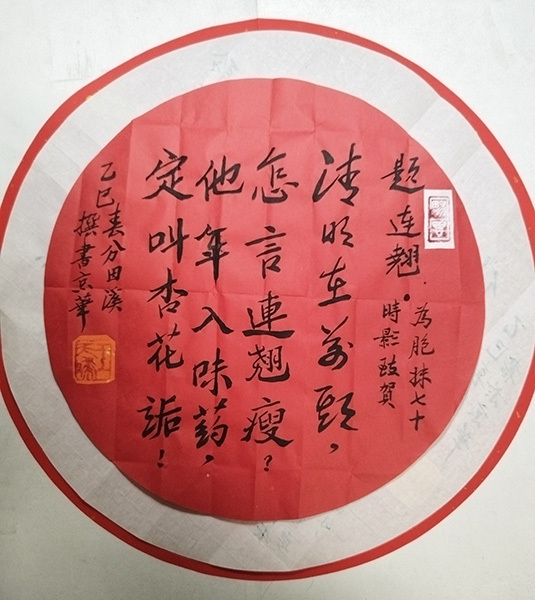 題連翹.
為胞妹七十
時影致賀
清明在前頭，
怎言連翹瘦？
他年入味葯，
定叫杏花詬！
乙巳春分田溪
撰書京華